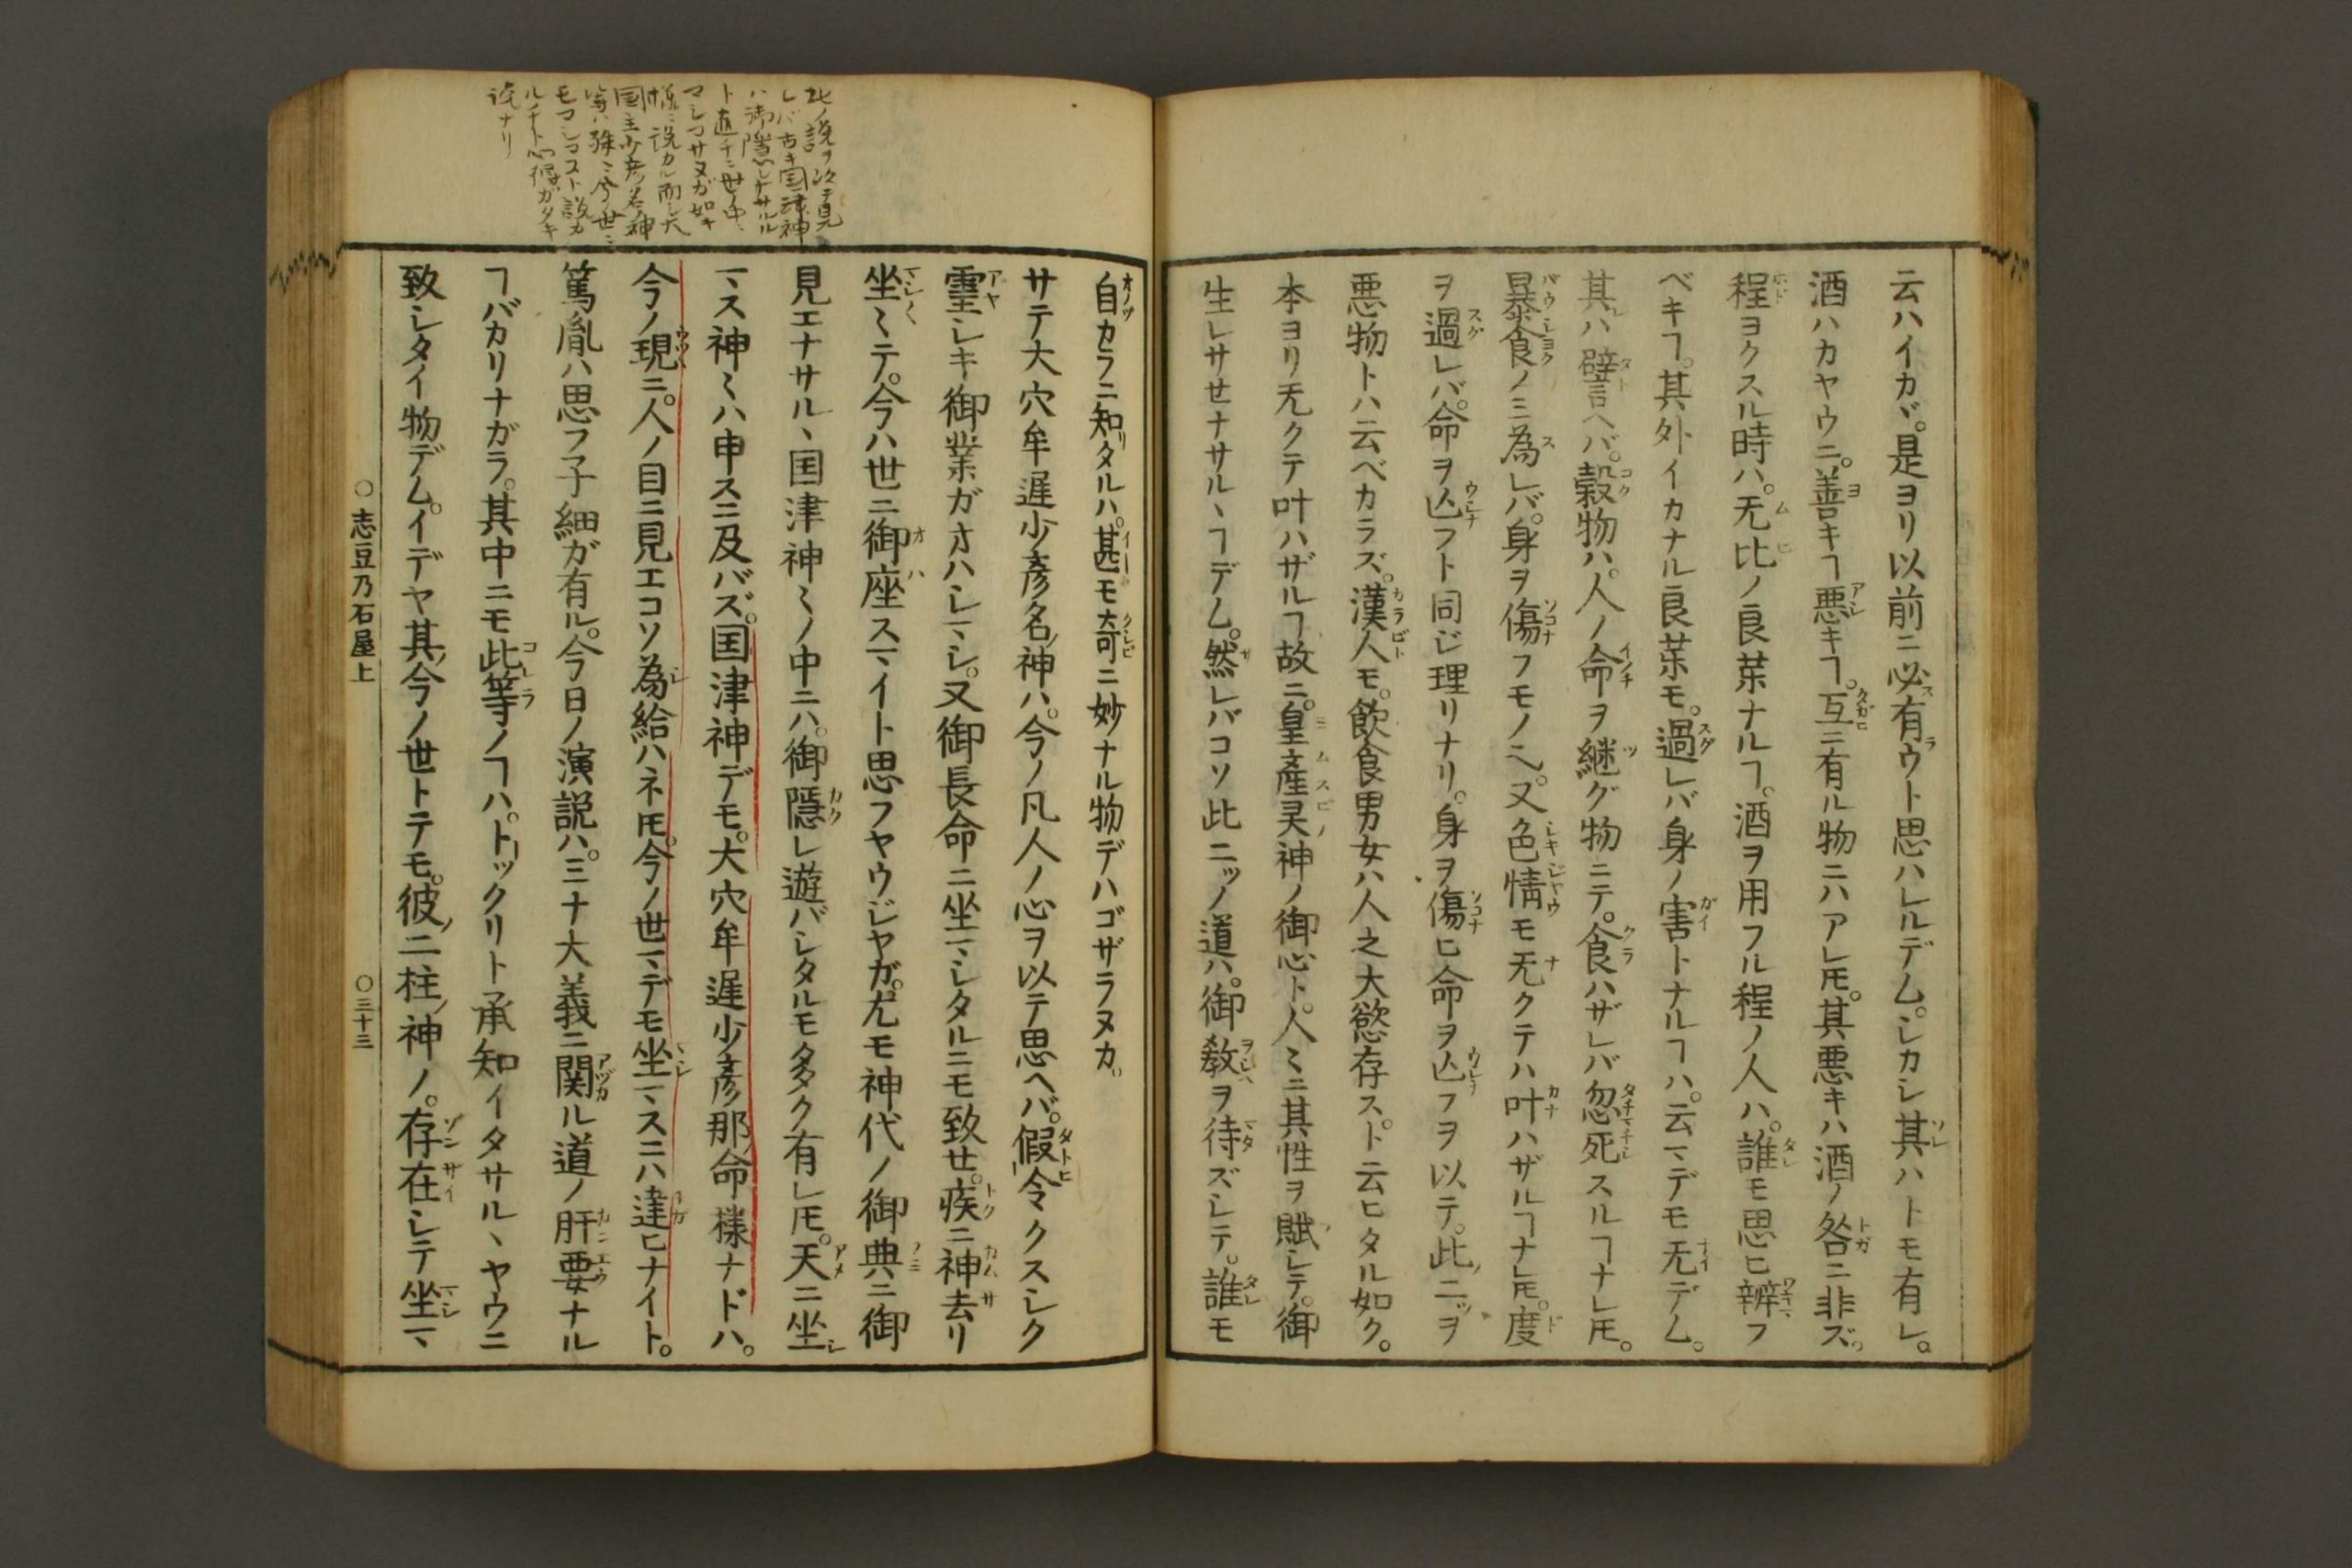 云ハイカヾ。是ヨリ以前ニ必有ウト思ハレルデム。シカシ其ハトモ有レ。
酒ハカヤウニ。善キヿ悪キヿ。互ニ有ル物ニハアレ𪜈。其悪キハ酒ノ咎ニ非ズ。
程ヨクスル時ハ。无比ノ良薬ナルヿ。酒ヲ用フル程ノ人ハ。誰モ思ヒ辨フ
ベキヿ。其外イカナル良薬モ。過レバ身ノ害トナルヿハ。云マデモ无デム。
其ハ譬ヘバ。穀物ハ。人ノ命ヲ継グ物ニテ。食ハザレバ忽死スルヿナレ𪜈。
暴食ノミ為レバ。身ヲ傷フモノ也。又色情モ无クテハ叶ハザルヿナレ𪜈。度
ヲ過レバ。命ヲ亾フト同ジ理リナリ。身ヲ傷ヒ命ヲ亾フヲ以テ。此ニッヲ
悪物トハ云ベカラズ。漢人モ。飲食男女ハ人之大慾存ス。ト云ヒタル如ク。
本ヨリ无クテ叶ハザルヿ故ニ。皇産灵神ノ御心ト。人ミニ其性ヲ賦シテ。御
生レサせナサルヽヿデム。然レバコソ此ニッノ道ハ。御教ヲ待ズシテ。誰モ
自カラニ知タルハ。甚モ奇ニ妙ナル物デハゴザラヌカ。
サテ大穴牟遅少彦名神ハ。今ノ凡人ノ心ヲ以テ思ヘバ。假令クスシク
霊シキ御業ガオハシマシ。又御長命ニ坐マシタルニモ致せ。疾ニ神去リ
坐〱テ。今ハ世ニ御座スマイト思フヤウジヤガ。尤モ神代ノ御典ニ御
見エナサルヽ国津神ミノ中ニハ。御隠レ遊バシタルモ多ク有レ𪜈。天ニ坐
マス神ミハ申スニ及バズ。国津神デモ。大穴牟遅少彦那命様ナドハ。
今ノ現ニ。人ノ目ニ見エコソ為給ハネ𪜈。今ノ世マデモ坐マスニハ違ヒナイト。
篤胤ハ思フ子細ガ有ル。今日ノ演説ハ。ミナ大義ニ関ル道ノ肝要ナル
ヿバカリナガラ。其中ニモ此等ノヿハ。トックリト承知イタサルヽヤウニ
致シタイ物デム。イデヤ其今ノ世トテモ。彼ニ柱ノ神ノ。存在シテ坐マ
○志豆乃石屋上
○三十三
此ノ説ヲ次テ見
レバ古キ国津神
ハ御隠レナサルル
ト直チニ世ノ中ニ
マシマサヌガ如キ
様ニ説カル而シ大
国主少彦名神
等ハ殊ニ今ノ世ニ
モマシマスト説カ
ルチト心得ガタキ
説ナリ